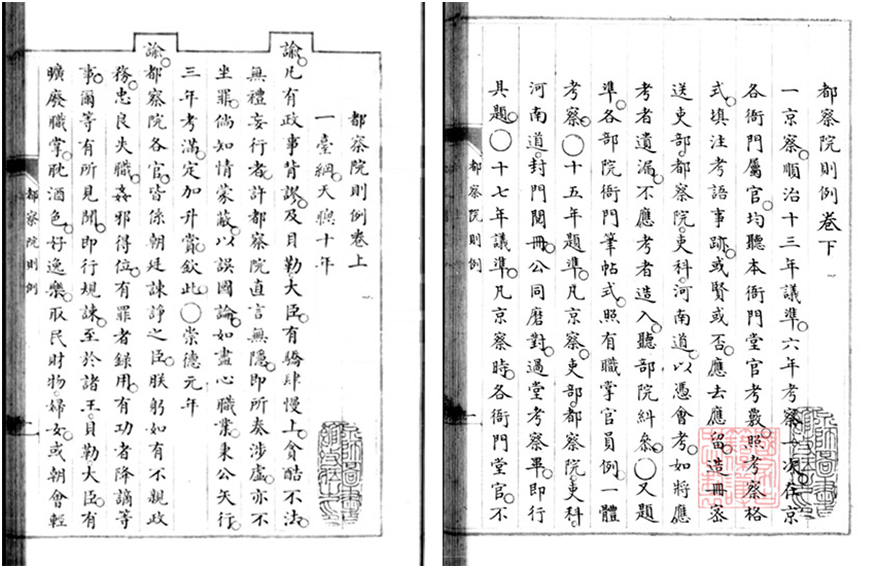 都察院則例卷上
一臺綱。天聰十年
諭。凡有政事背謬。及貝勒大臣。有驕肆慢上。貪酷不法。
無禮妄行者。許都察院直言無隱。即所奏涉虛。亦不
坐罪。倘知情蒙蔽。以誤國論。如盡心職業。秉公矢行。
三年考滿。定加升賞。欽此。〇崇德元年
諭。都察院各官。皆係朝廷諫諍之臣。朕躬如有不親政
務。忠良失職。姦邪得位。有罪者錄用。有功者降謫等
事。爾等有所見聞。即行規諫。至於諸王。貝勒大臣。有
曠廢職掌。耽酒色。好逸樂。取民財物。婦女。或朝會輕
都察院則例
都察院則例卷下
一京察。順治十三年議準。六年考察一次。在京
各衙門屬官。均聽本衙門堂官考覈。照考察格
式。填注考語事跡。或賢或否。應去應留。造冊密
送吏部。都察院。吏科。河南道。以憑會考。如將應
考者遺漏。不應考者造入。聽部院糾參。〇又題
準。各部院衙門筆帖式。照有職掌官員例。一體
考察。〇十五年題準。凡京察。吏部。都察院。吏科。
河南道。封門閱冊。公同磨對。過堂考察畢。即行
具題。〇十七年議準。凡京察時。各衙門堂官。不
都察院則例